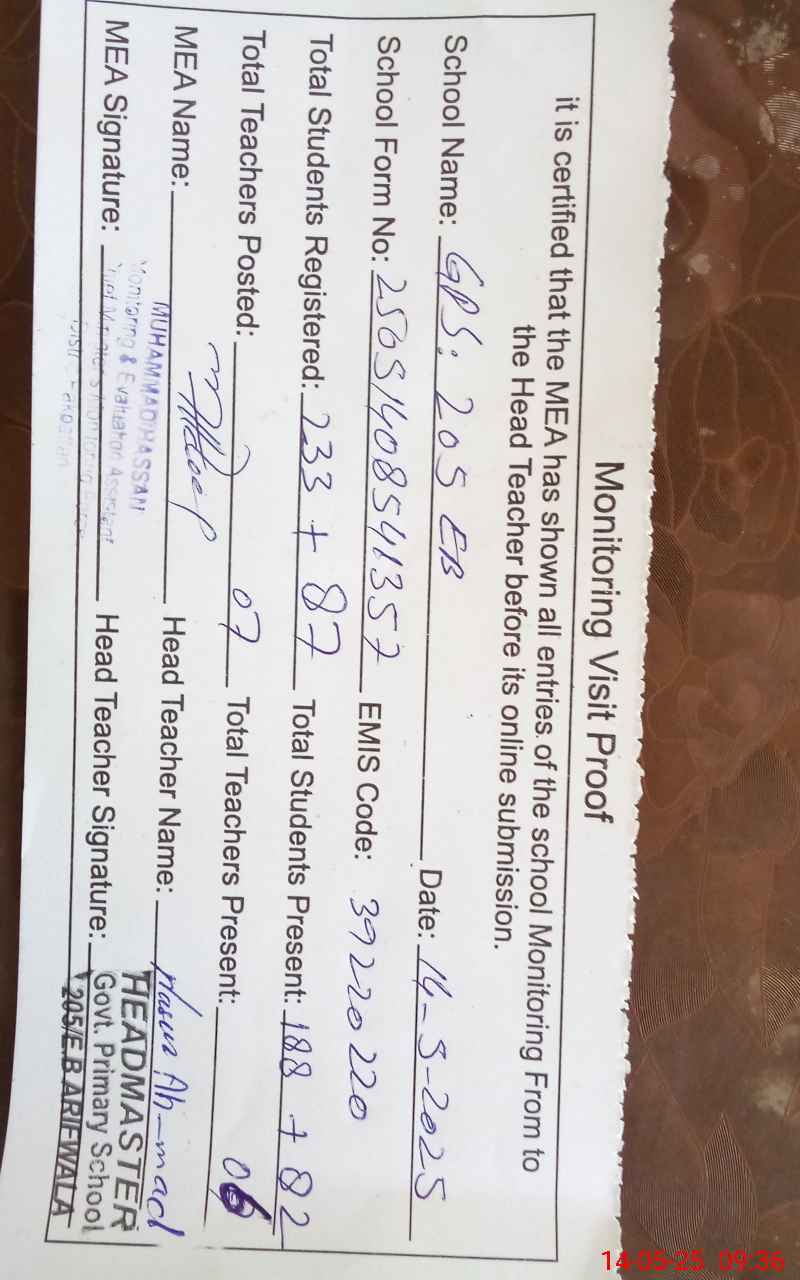 Monitoring Visit Proof
it is certified that the MEA has shown all entries of the school Monitoring From to
the Head Teacher before its online submission.
School Name: GPS: 205 EB Date: 14-5-2025
School Form No: 25051408541357 EMIS Code: 39220220
Total Students Registered: 233 + 87 Total Students Present: 188 + 82
Total Teachers Posted: 07 Total Teachers Present: 06
MEA Name: Head Teacher Name: Ahmad
MUHAMMAD HASSAN
Monitoring & Evaluation Assistant
MEA Signature: Head Teacher Signature:
HEADMASTER
Govt. Primary School
205/E.B ARIFWALA
14-05-25 09:36